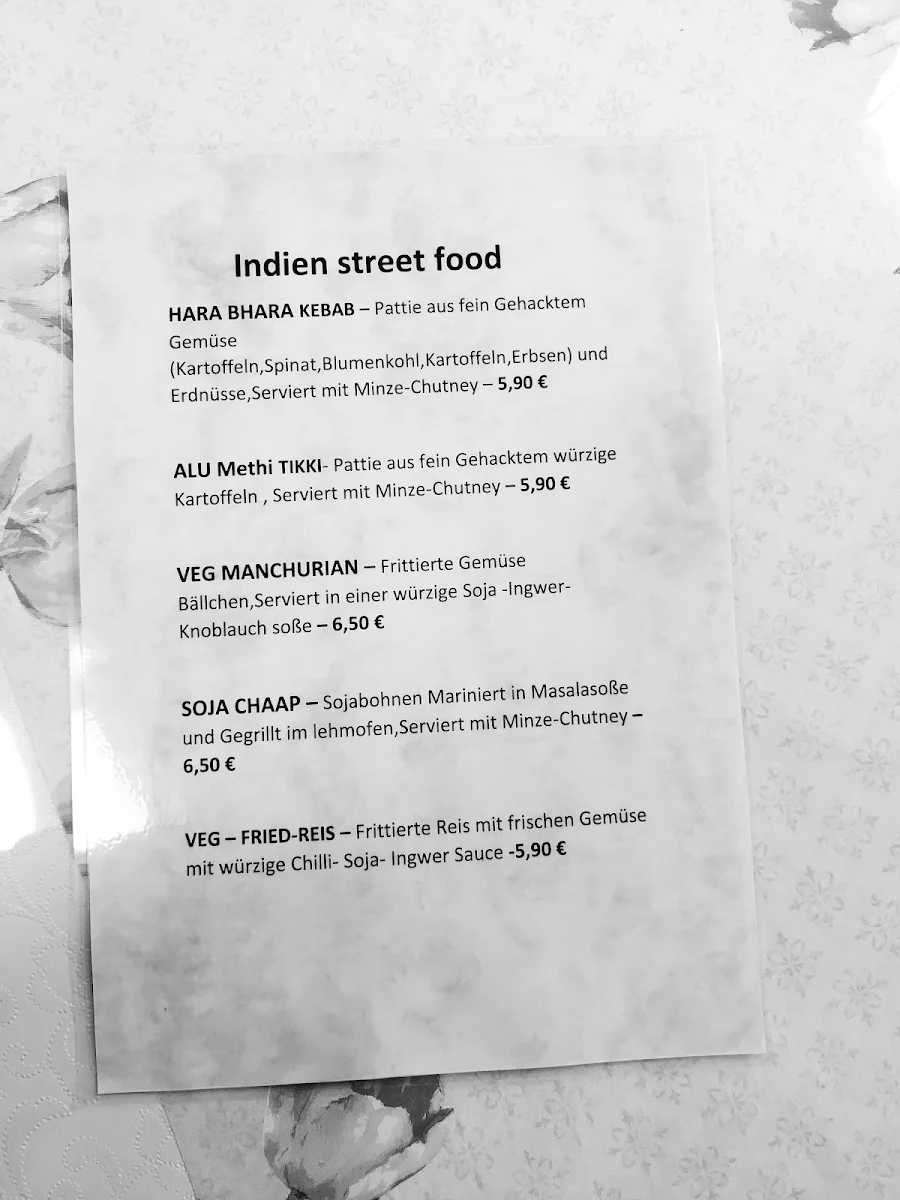 Indien street food
HARA BHARA KEBAB – Pattie aus fein Gehacktem
Gemüse
(Kartoffeln,Spinat,Blumenkohl,Kartoffeln,Erbsen) und
Erdnüsse,Serviert mit Minze-Chutney – 5,90 €
ALU Methi TIKKI- Pattie aus fein Gehacktem würzige
Kartoffeln , Serviert mit Minze-Chutney – 5,90 €
VEG MANCHURIAN – Frittierte Gemüse
Bällchen,Serviert in einer würzige Soja -Ingwer-
Knoblauch soße – 6,50 €
SOJA CHAAP – Sojabohnen Mariniert in Masalasoße
und Gegrillt im lehmofen,Serviert mit Minze-Chutney –
6,50 €
VEG – FRIED-REIS – Frittierte Reis mit frischen Gemüse
mit würzige Chilli- Soja- Ingwer Sauce -5,90 €